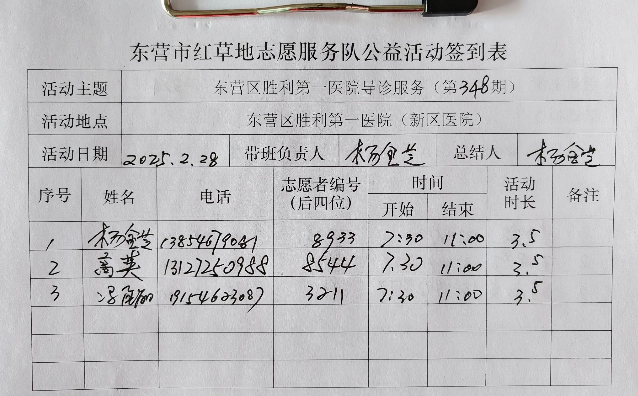 东营市红草地志愿服务队公益活动签到表
活动主题 东营区胜利第一医院导诊服务（第348期）
活动地点 东营区胜利第一医院（新区医院）
活动日期 2025.2.28 带班负责人 杨金芝 总结人 杨金芝
序号 姓名 电话 志愿者编号（后四位） 时间 开始 结束 活动时长 备注
1 杨金芝 13854679081 8933 7:30 11:00 3.5
2 蔺英 13127250988 8544 7.30 11:00 3.5
3 19154623087 3211 7:30 11:00 3.5